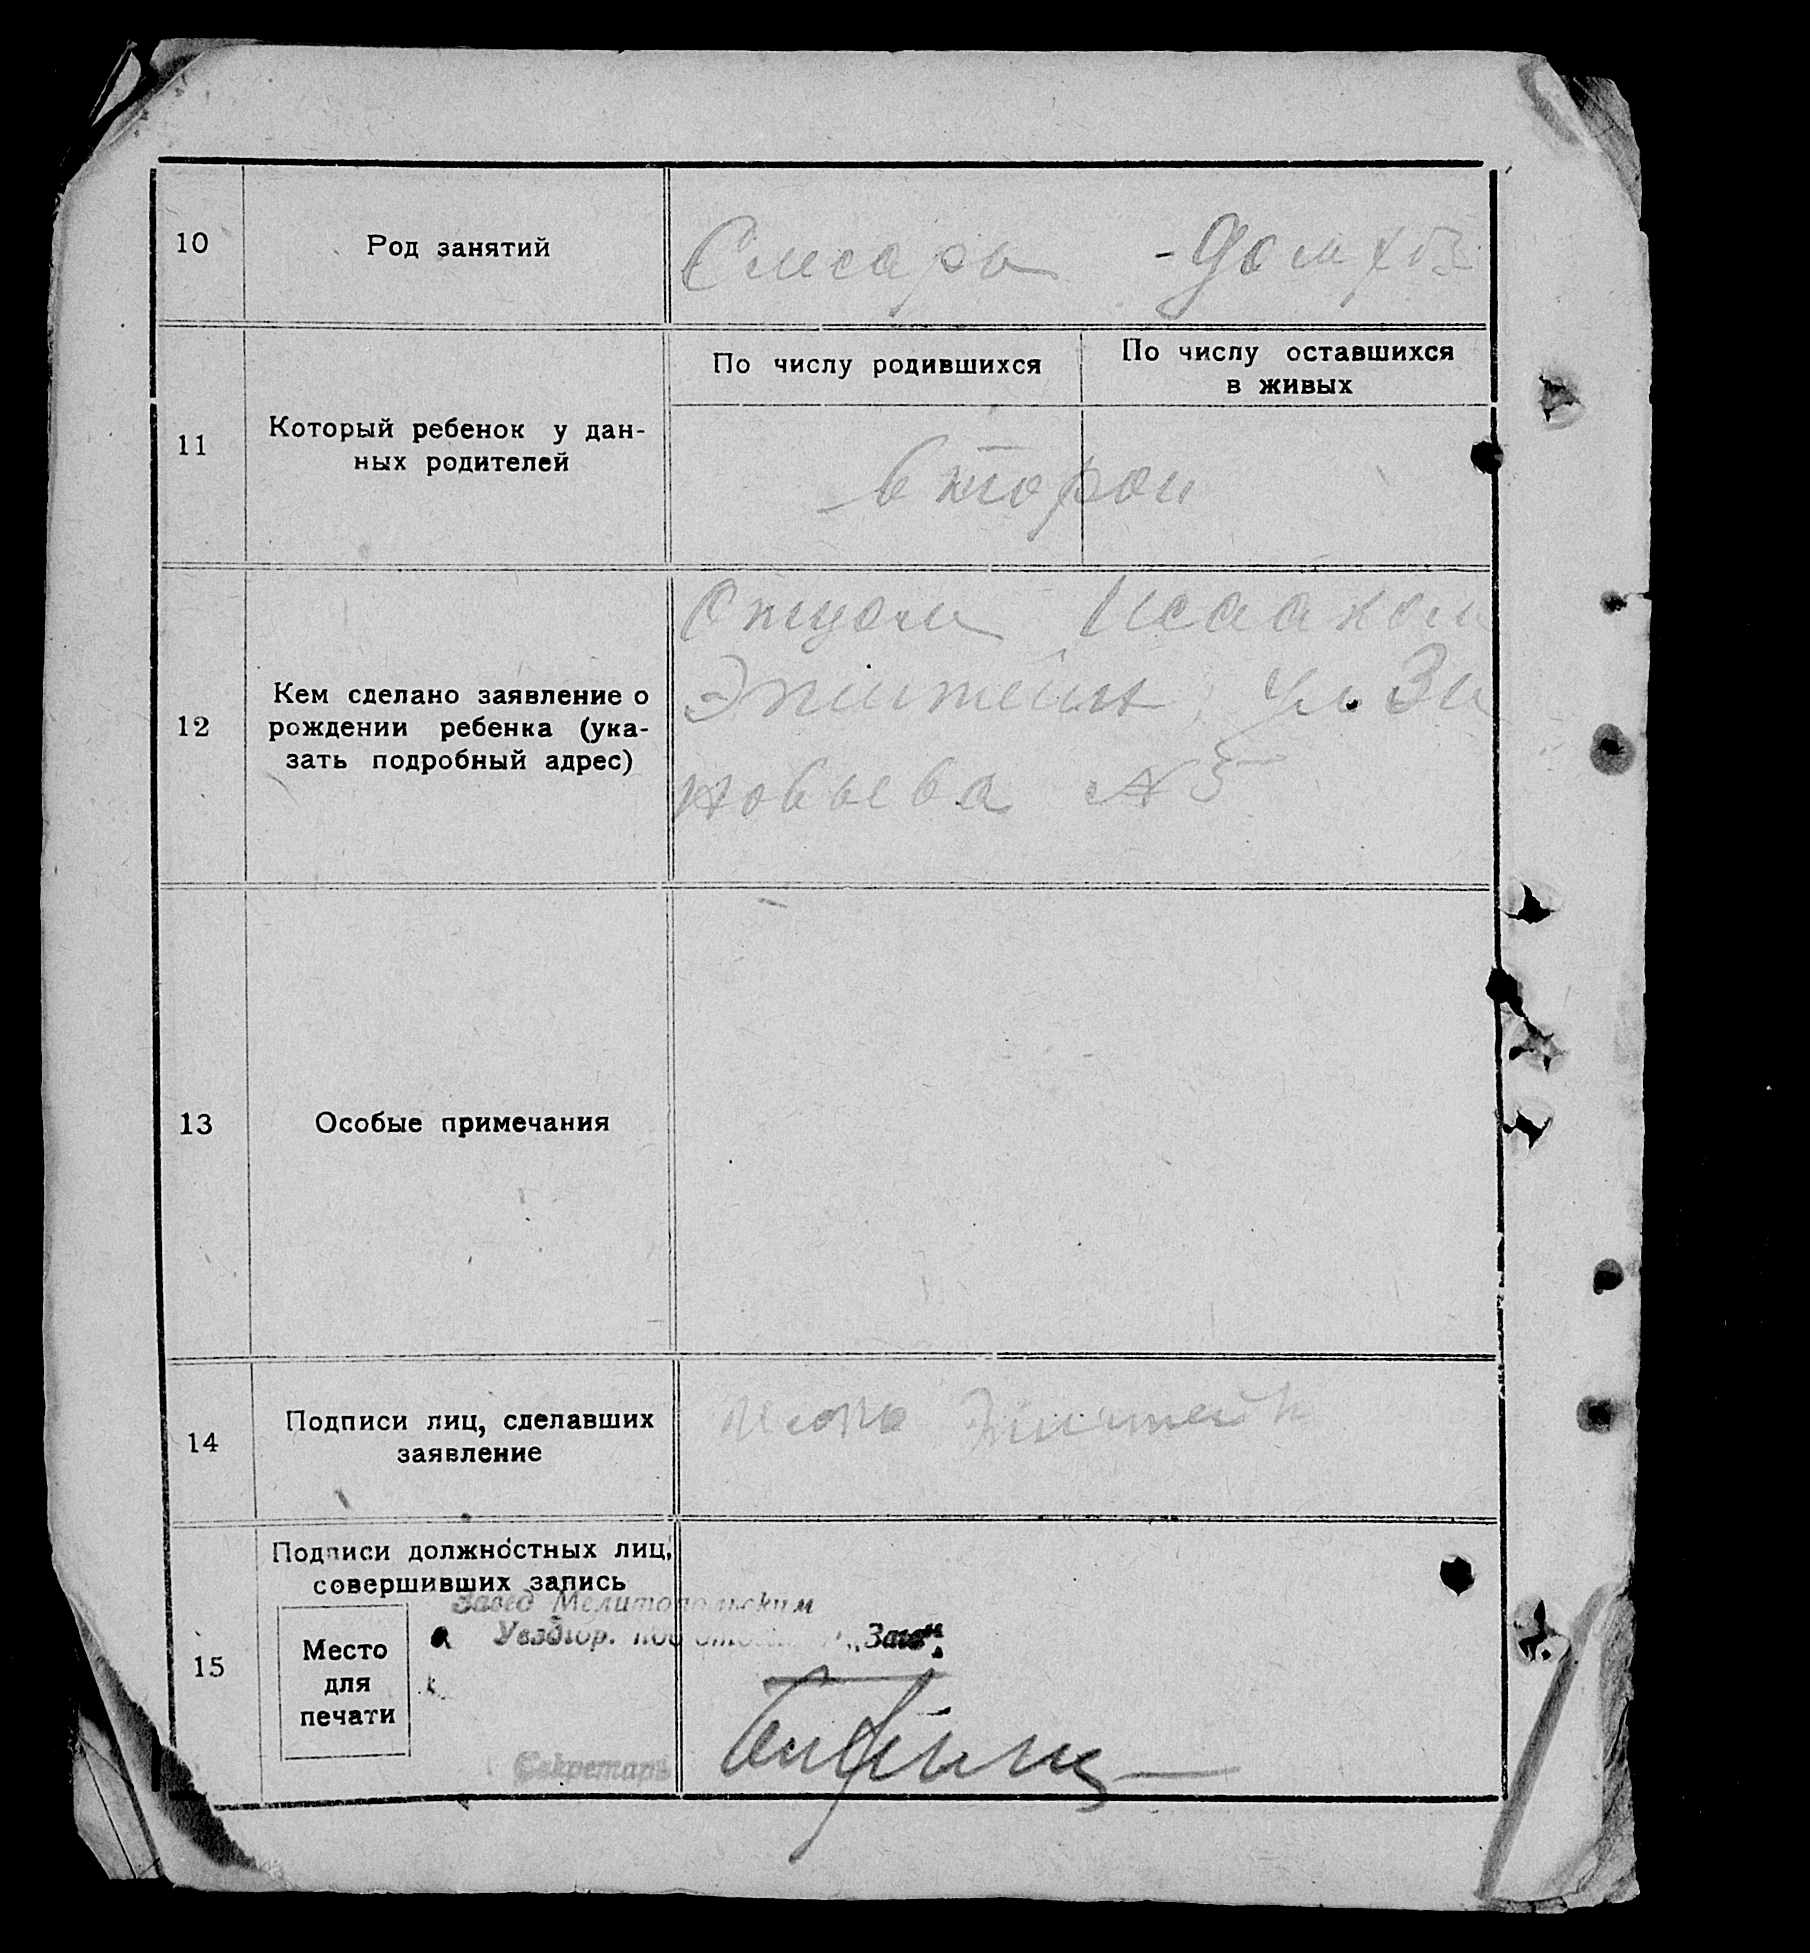 10 Род занятий Слесарь - домхоз
11 Который ребенок у дан-
ных родителей
По числу родившихся
По числу оставшихся
в живых
второй
12 Кем сделано заявление о
рождении ребенка (ука-
зать подробный адрес)
Отцом Исааком
Эпштейн, ул. Зи
новьева № 5
13 Особые примечания
14 Подписи лиц, сделавших
заявление
Эпштейн
15 Подписи должностных лиц,
совершивших запись
Завед Мелитопольским
„Загс“
Место
для
печати
Секретарь